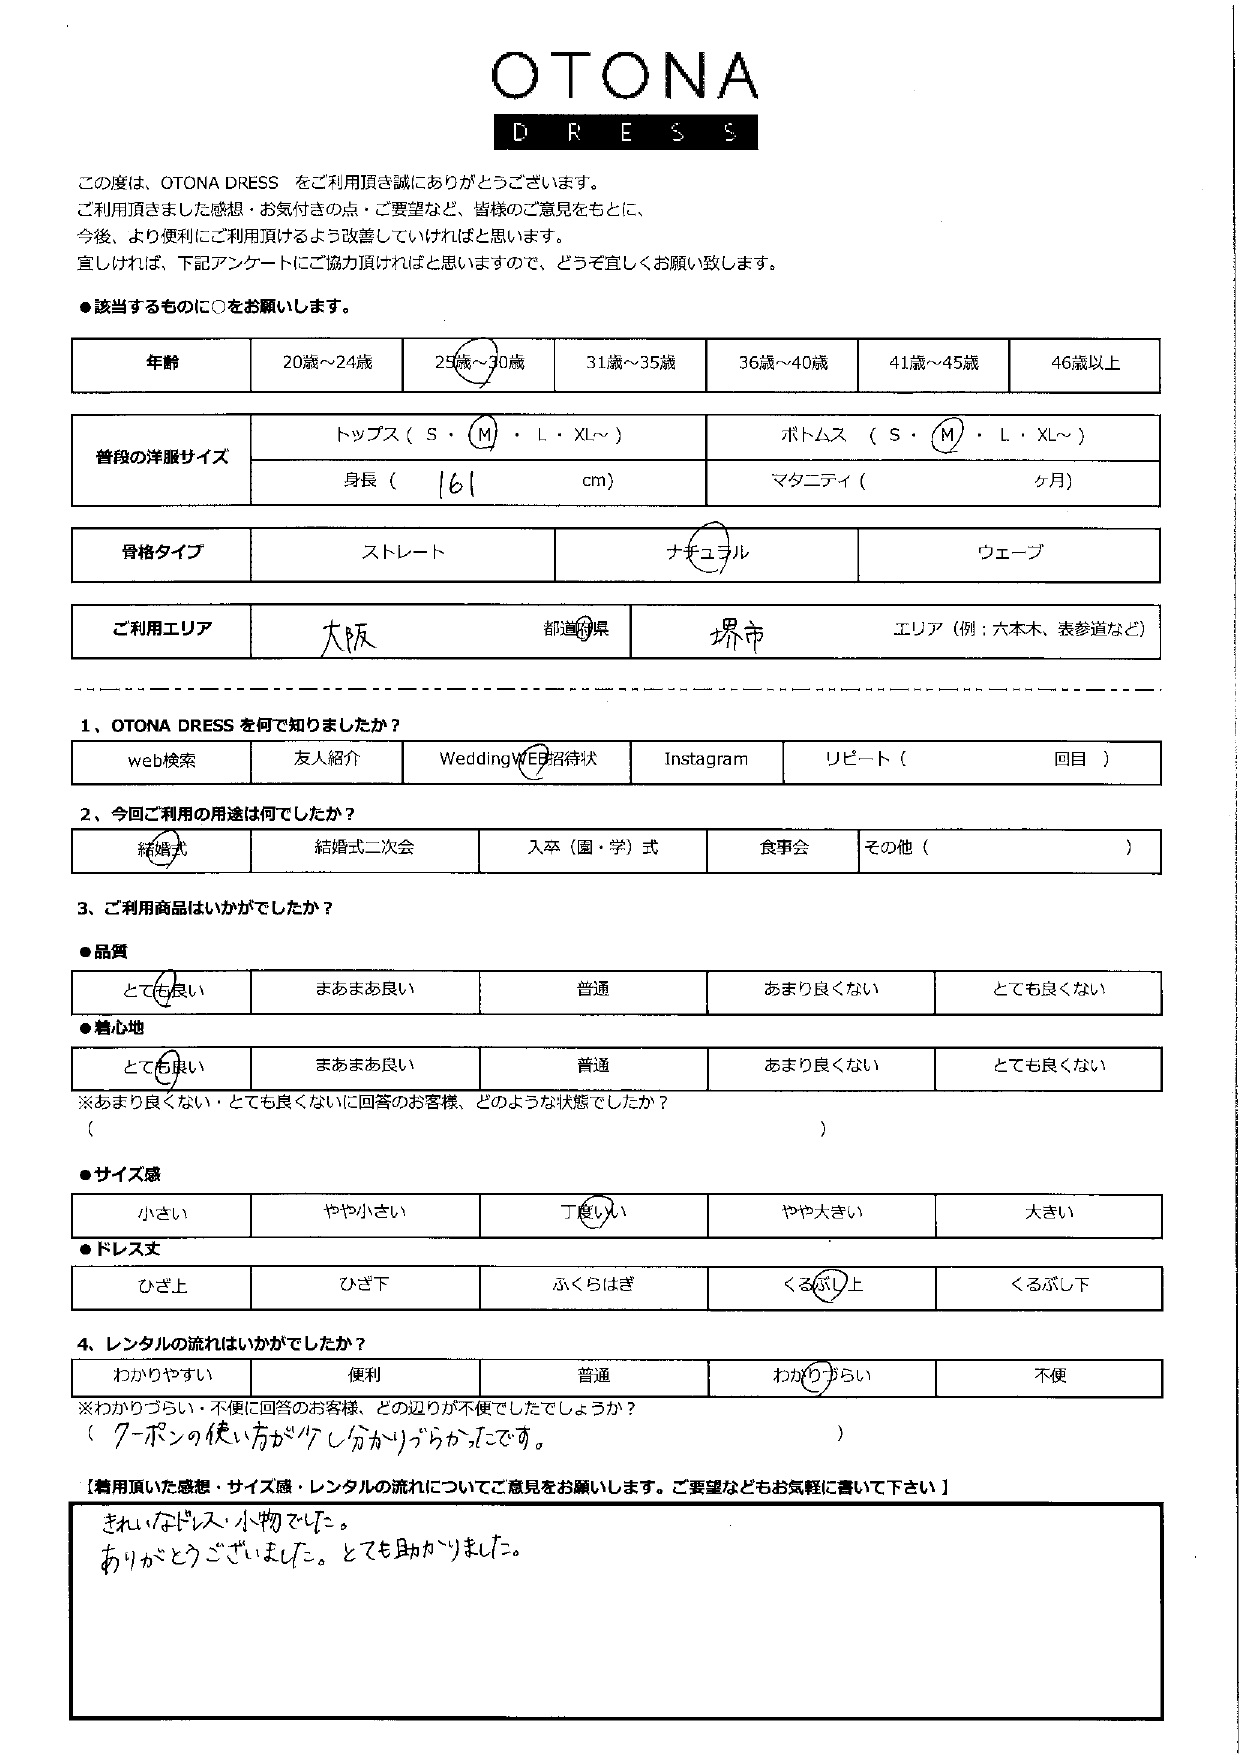 OTONA
DRESS
この度は、OTONA DRESS　をご利用頂き誠にありがとうございます。
ご利用頂きました感想・お気付きの点・ご要望など、皆様のご意見をもとに、
今後、より便利にご利用頂けるよう改善していければと思います。
宜しければ、下記アンケートにご協力頂ければと思いますので、どうぞ宜しくお願い致します。
●該当するものに○をお願いします。
年齢 20歳～24歳 25歳～30歳 31歳～35歳 36歳～40歳 41歳～45歳 46歳以上
普段の洋服サイズ トップス（ S ・ M ・ L ・ XL～ ） ボトムス （ S ・ M ・ L ・ XL～ ）
身長（ 161 cm） マタニティ（ ヶ月）
骨格タイプ ストレート ナチュラル ウェーブ
ご利用エリア 大阪 都道府県 堺市 エリア（例；六本木、表参道など）
1、OTONA DRESS を何で知りましたか？
web検索 友人紹介 WeddingWEB招待状 Instagram リピート（ 回目 ）
2、今回ご利用の用途は何でしたか？
結婚式 結婚式二次会 入卒（園・学）式 食事会 その他（ ）
3、ご利用商品はいかがでしたか？
●品質
とても良い まあまあ良い 普通 あまり良くない とても良くない
●着心地
とても良い まあまあ良い 普通 あまり良くない とても良くない
※あまり良くない・とても良くないに回答のお客様、どのような状態でしたか？
（ ）
●サイズ感
小さい やや小さい 丁度いい やや大きい 大きい
●ドレス丈
ひざ上 ひざ下 ふくらはぎ くるぶし上 くるぶし下
4、レンタルの流れはいかがでしたか？
わかりやすい 便利 普通 わかりづらい 不便
※わかりづらい・不便に回答のお客様、どの辺りが不便でしたでしょうか？
（ クーポンの使い方が少し分かりづらかったです。 ）
【着用頂いた感想・サイズ感・レンタルの流れについてご意見をお願いします。ご要望などもお気軽に書いて下さい 】
きれいなドレス・小物でした。
ありがとうございました。とても助かりました。